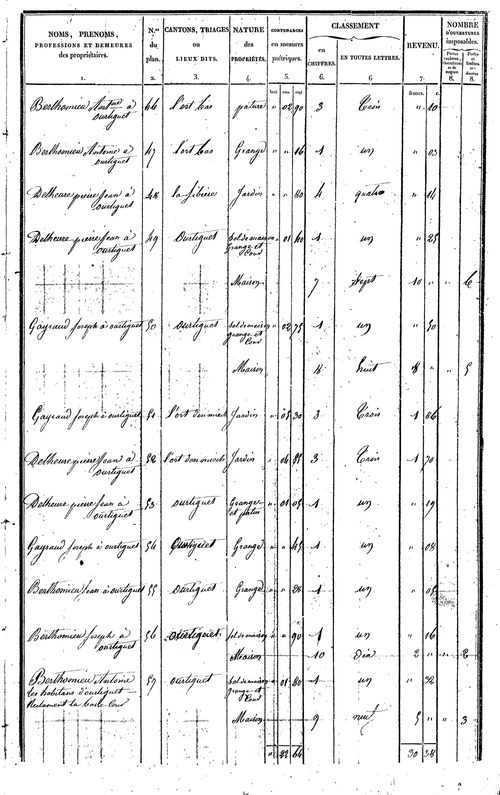 NOMS, PRENOMS,
PROFESSIONS ET DEMEURES
des propriétaires.
N.os
du
plan.
CANTONS, TRIAGES
ou
LIEUX DITS.
NATURE
des
PROPRIÉTÉS.
CONTENANCES
en mesures
métriques.
CLASSEMENT
en
CHIFFRES.
EN TOUTES LETTRES.
REVENU.
NOMBRE
D'OUVERTURES
imposables.
1. 2. 3. 4. 5. 6. 6 7. 8. 8.
francs. c.
Berthomieu Antne à 46 l'ort bas pature " 02 90 3 Trois " 10
ourtiguet
Berthomieu Antoine à 47 l'ort bas Grange " " 16 1 un " 03
ourtiguet
Delheure pierre Jean à 48 Jardin " " 80 4 quatre " 14
ourtiguet
Delheure pierre Jean à 49 Ourtiguet Sol de maison " 01 40 1 un " 25
ourtiguet Grange et
Cour
Maison 7 Sept 10 " " 6
Gayraud Joseph à ourtiguet 50 ourtiguet Sol de maison " 02 75 1 un " 50
grange et
Cour
Maison 8 huit 8 " " 5
Gayraud Joseph à ourtiguet 51 Jardin " 05 30 3 Trois 1 86
Delheure pierre Jean à 52 Jardin " 04 85 3 Trois 1 70
ourtiguet
Delheure pierre Jean à 53 ourtiguet Grange " 01 05 1 un " 19
ourtiguet et patus
Gayraud Joseph à ourtiguet 54 Ourtiguet Grange " " 45 1 un " 08
Berthomieu Jean à ourtiguet 55 Ourtiguet Grange " " 28 1 un " 05
Berthomieu Joseph à 56 Ourtiguet Sol de maison " " 90 1 un " 16
ourtiguet Maison 10 dix 2 " " 2
Berthomieu Antoine 57 ourtiguet Sol de maison " 01 80 1 un " 32
Les habitans d'ourtiguet grange et
Reclament la basse Cour Cour
Maison 9 neuf 5 " " 3
" 82 64 30 38